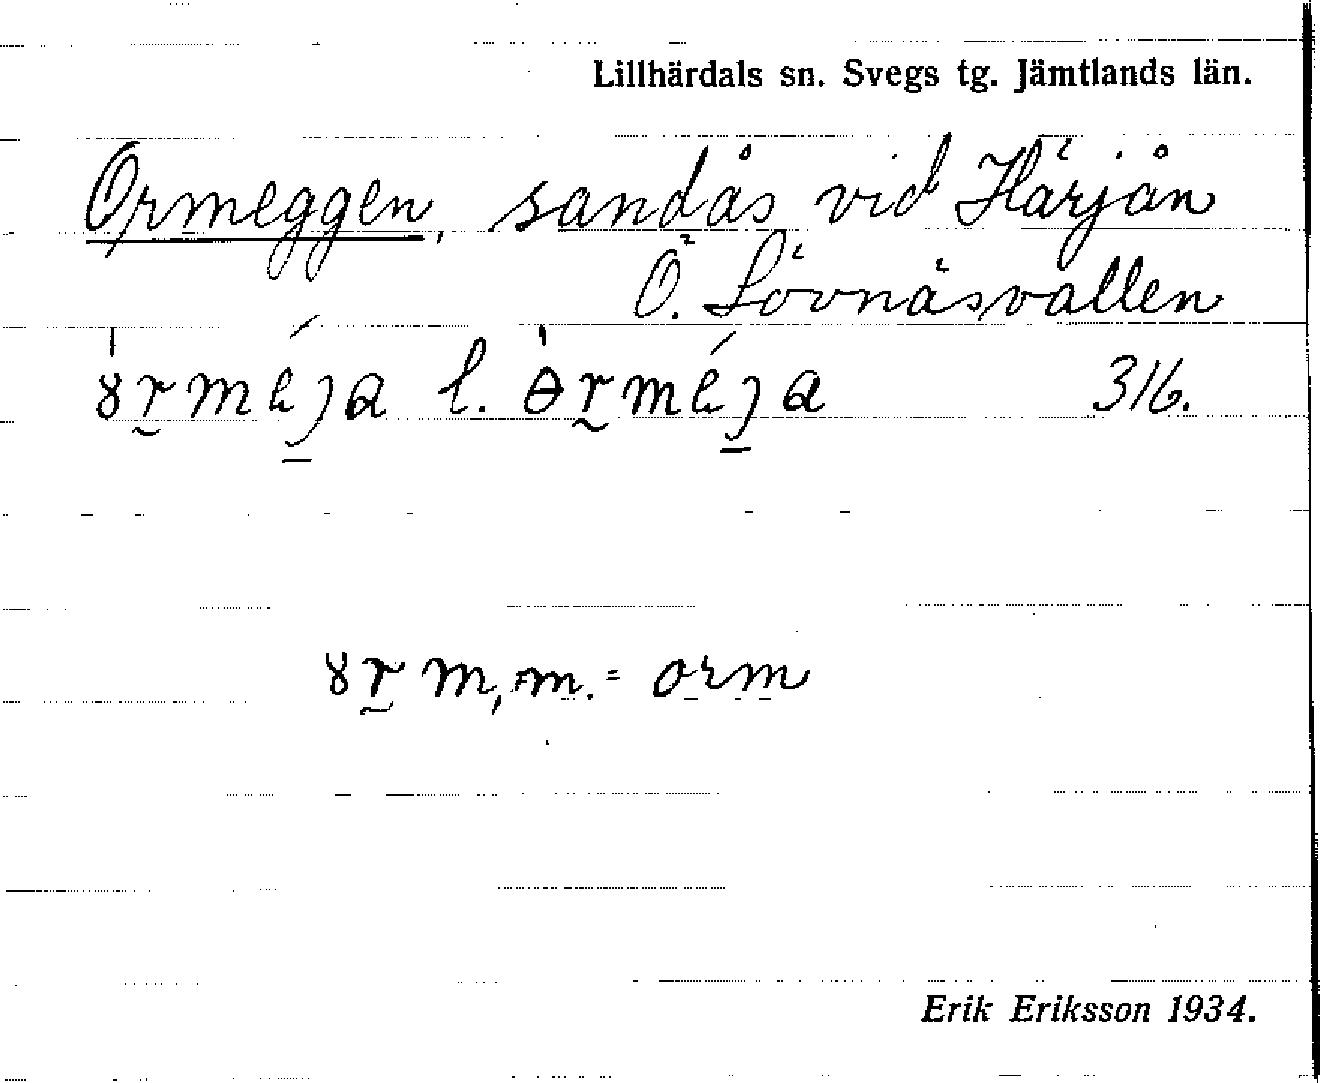 Lillhärdals sn. Svegs tg. Jämtlands län.
Ormeggen, sandås vid Härjån
Ö. Lövnäsvallen
ɤ̍r̰méȷa l. ɵ̍r̰méȷa 316.
ɤr̰m, m. = orm
Erik Eriksson 1934.